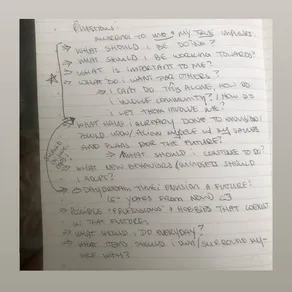 QUESTIONS:
ACCORDING TO WHO & MY TRUE VALUES:
→ WHAT SHOULD I BE DOING?
→ WHAT SHOULD I BE WORKING TOWARDS?
→ WHAT IS IMPORTANT TO ME?
→ WHAT DO I WANT FOR OTHERS?
→ I CAN'T DO THIS ALONE, HOW DO
I INVOLVE COMMUNITY? HOW DO
I LET THEM INVOLVE ME?
→ WHAT HAVE I ALREADY DONE TO
BUILD UPON/ALIGN MYSELF W/ MY VALUES
AND PLANS FOR THE FUTURE?
→ WHAT SHOULD I CONTINUE TO DO?
→ WHAT NEW BEHAVIORS/MINDSETS SHOULD
I ADOPT?
→ DAYDREAM/THINK/ENVISION A FUTURE!
YEARS FROM NOW) <3
→ POSSIBLE "PROFESSIONS" & HOBBIES THAT
IN THAT FUTURE.
→ WHAT SHOULD I DO EVERYDAY?
→ WHAT SHOULD I OWN/SURROUND MY-
WHY?